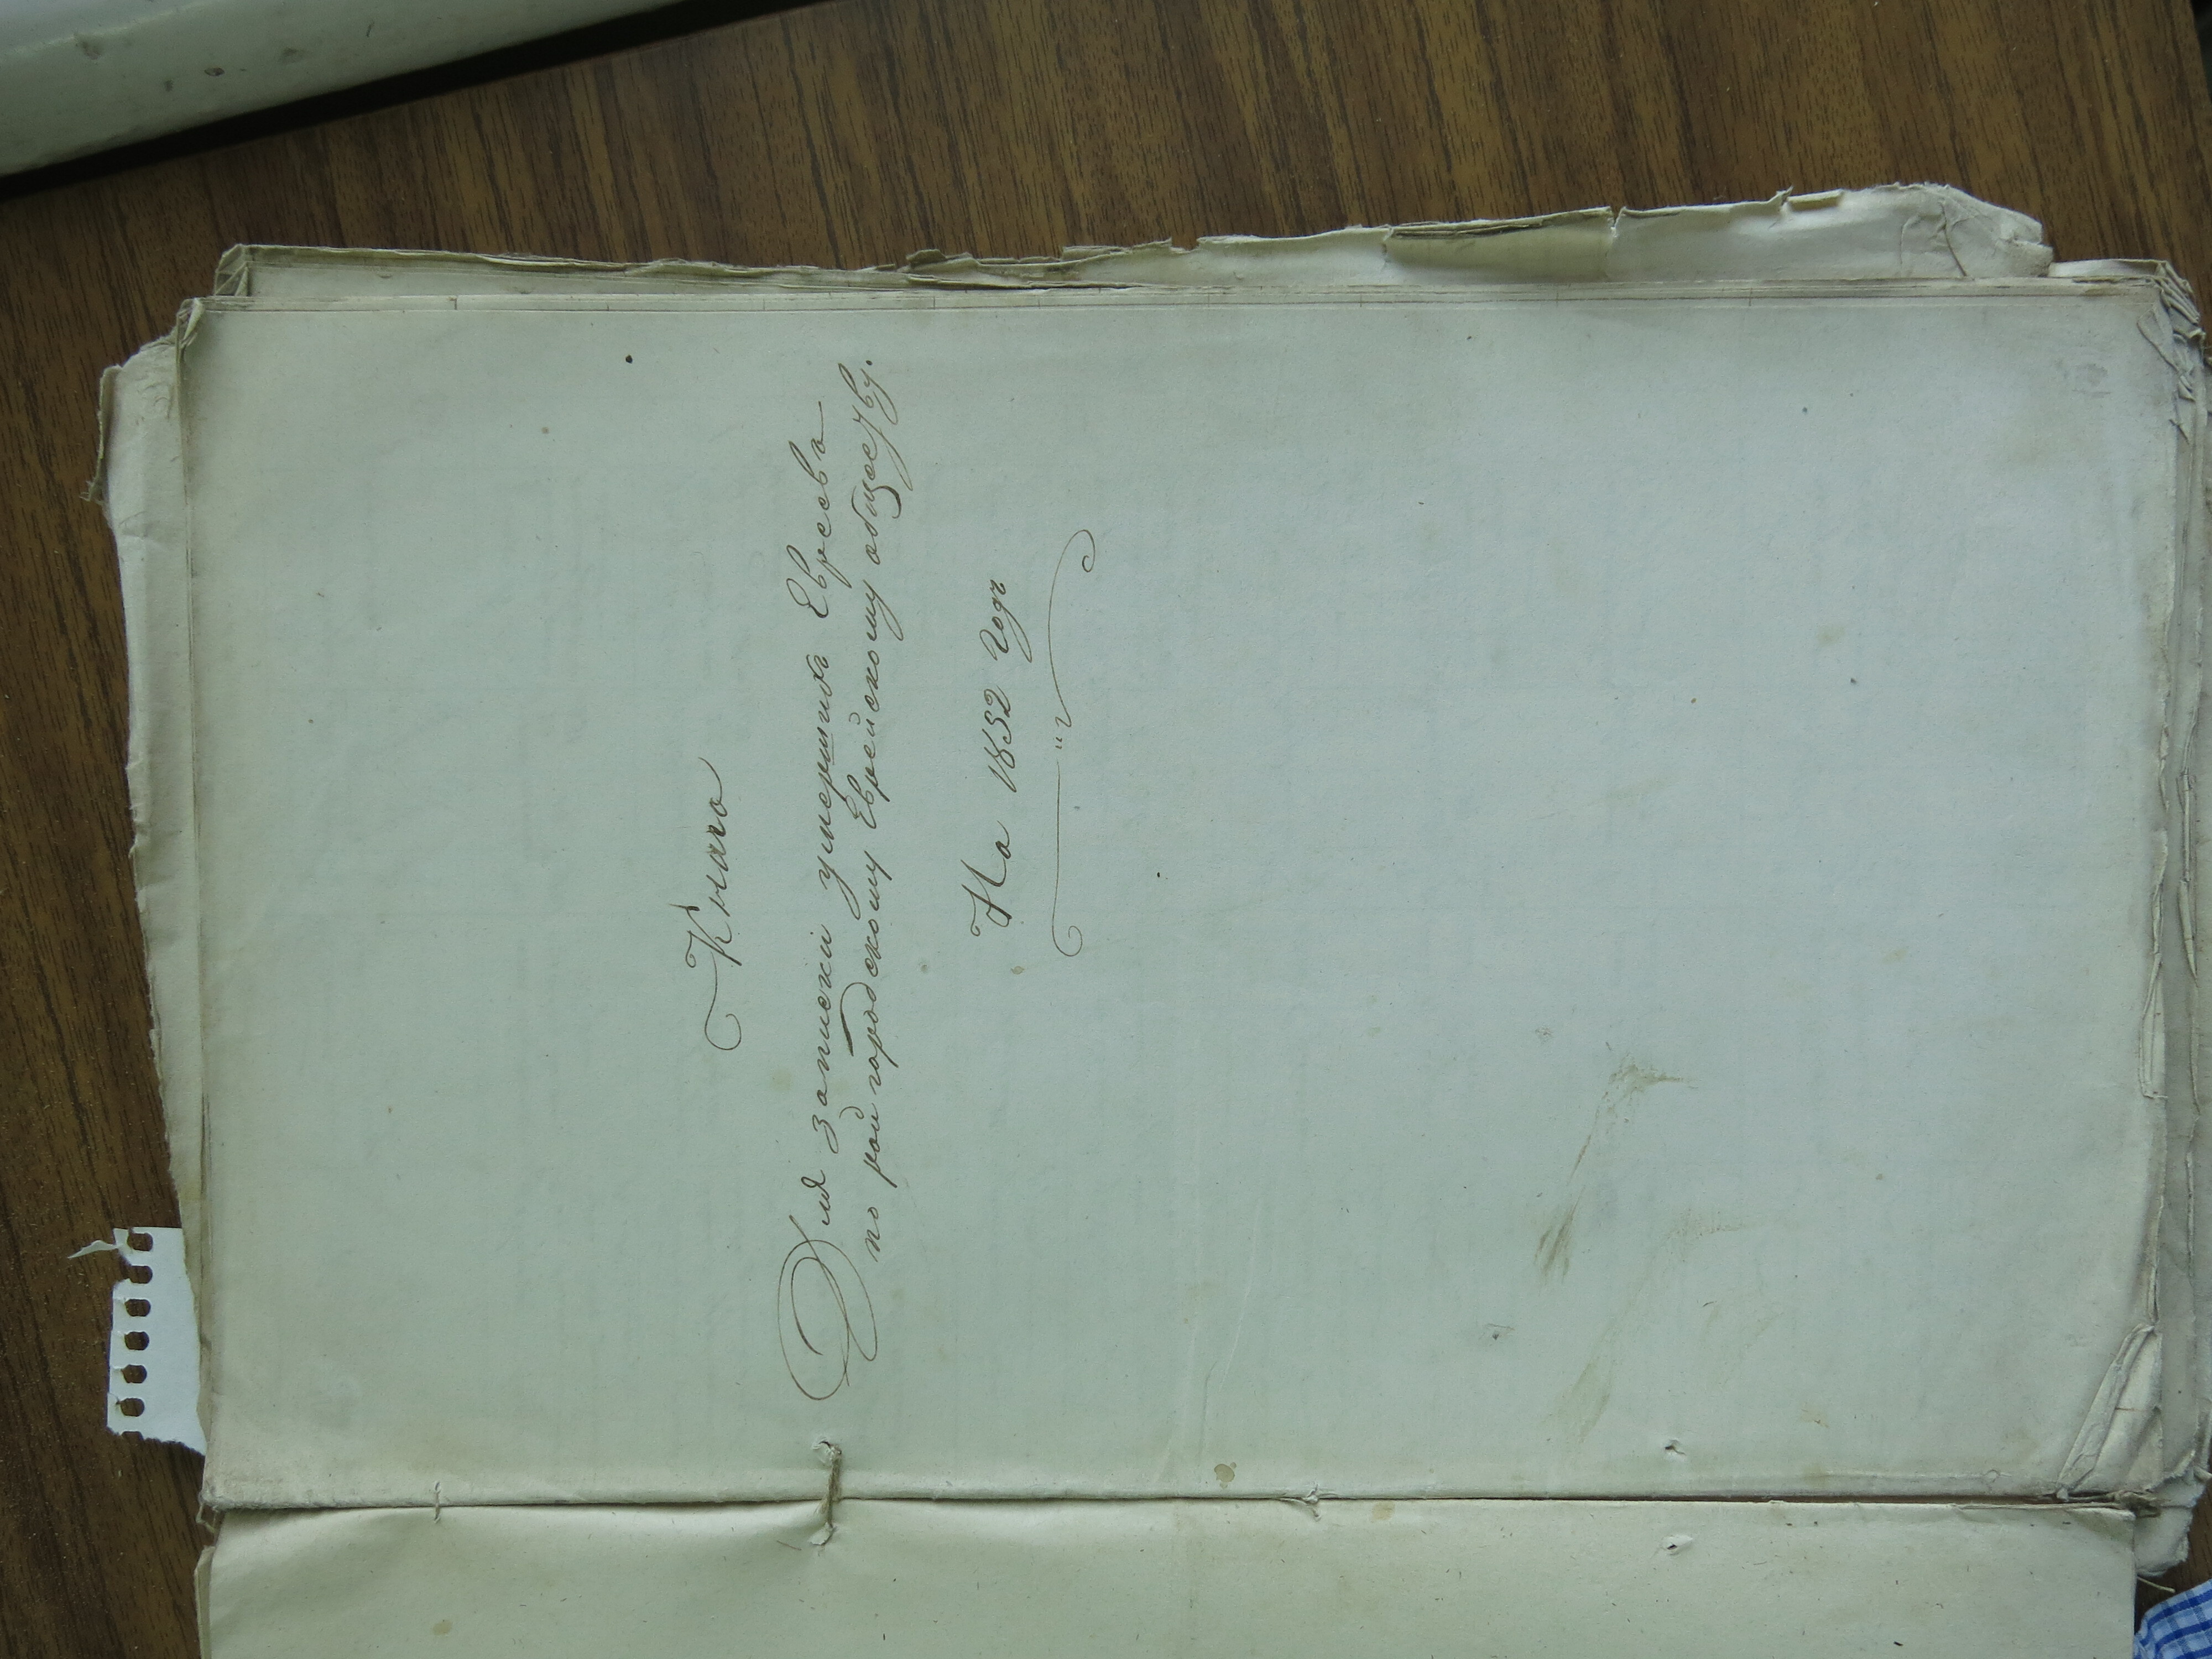 Книга
Для записки умершихъ Евреевъ
по городскому Еврейскому обществу.
На 1852 Годъ